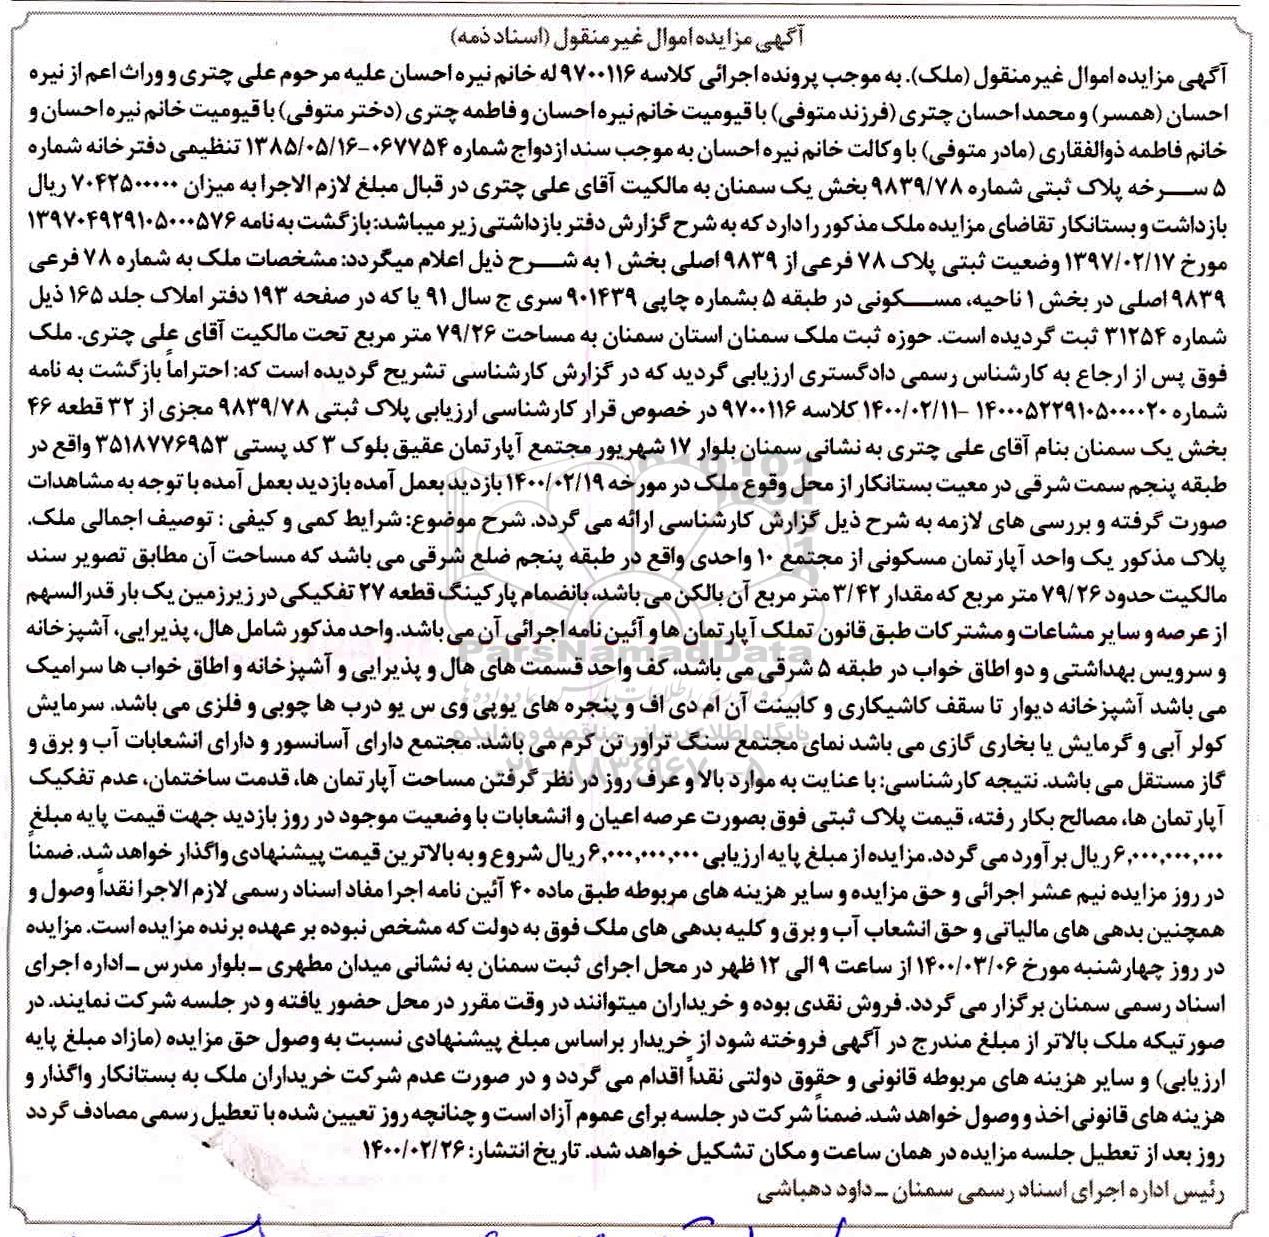 آگهی مزایده اموال غیرمنقول (اسناد ذمه)
آگهی مزایده اموال غیرمنقول (ملک). به موجب پرونده اجرائی کلاسه ۹۷۰۰۱۱۶ له خانم نیره احسان علیه مرحوم علی چتری و وراث اعم از نیره
احسان (همسر) و محمد احسان چتری (فرزند متوفی) با قیومیت خانم نیره احسان و فاطمه چتری (دختر متوفی) با قیومیت خانم نیره احسان و
خانم فاطمه ذوالفقاری (مادر متوفی) با وکالت خانم نیره احسان به موجب سند ازدواج شماره ۰۶۷۷۵۴-۱۳۸۵/۰۵/۱۶ تنظیمی دفترخانه شماره
۵ سرخه پلاک ثبتی شماره ۹۸۳۹/۷۸ بخش یک سمنان به مالکیت آقای علی چتری در قبال مبلغ لازم الاجرا به میزان ۷۰۴۲۵۰۰۰۰۰ ریال
بازداشت و بستانکار تقاضای مزایده ملک مذکور را دارد که به شرح گزارش دفتر بازداشتی زیر میباشد: بازگشت به نامه ۱۳۹۷۰۴۹۲۹۱۰۵۰۰۰۵۷۶
مورخ ۱۳۹۷/۰۲/۱۷ وضعیت ثبتی پلاک ۷۸ فرعی از ۹۸۳۹ اصلی بخش ۱ به شرح ذیل اعلام میگردد: مشخصات ملک به شماره ۷۸ فرعی
۹۸۳۹ اصلی در بخش ۱ ناحیه، مسکونی در طبقه ۵ بشماره چاپی ۹۰۱۴۳۹ سری ج سال ۹۱ یا که در صفحه ۱۹۳ دفتر املاک جلد ۱۶۵ ذیل
شماره ۳۱۲۵۴ ثبت گردیده است. حوزه ثبت ملک سمنان استان سمنان به مساحت ۷۹/۲۶ متر مربع تحت مالکیت آقای علی چتری. ملک
فوق پس از ارجاع به کارشناس رسمی دادگستری ارزیابی گردید که در گزارش کارشناسی تشریح گردیده است که: احتراماً بازگشت به نامه
شماره ۱۴۰۰۰۵۲۲۹۱۰۵۰۰۰۰۲۰ -۱۴۰۰/۰۲/۱۱ کلاسه ۹۷۰۰۱۱۶ در خصوص قرار کارشناسی ارزیابی پلاک ثبتی ۹۸۳۹/۷۸ مجزی از ۳۲ قطعه ۴۶
بخش یک سمنان بنام آقای علی چتری به نشانی سمنان بلوار ۱۷ شهریور مجتمع آپارتمان عقیق بلوک ۳ کد پستی ۳۵۱۸۷۷۶۹۵۳ واقع در
طبقه پنجم سمت شرقی در معیت بستانکار از محل وقوع ملک در مورخه ۱۴۰۰/۰۲/۱۹ بازدید بعمل آمده بازدید بعمل آمده با توجه به مشاهدات
صورت گرفته و بررسی های لازمه به شرح ذیل گزارش کارشناسی ارائه می گردد. شرح موضوع: شرایط کمی و کیفی : توصیف اجمالی ملک.
پلاک مذکور یک واحد آپارتمان مسکونی از مجتمع ۱۰ واحدی واقع در طبقه پنجم ضلع شرقی می باشد که مساحت آن مطابق تصویر سند
مالکیت حدود ۷۹/۲۶ متر مربع که مقدار ۳/۴۲ متر مربع آن بالکن می باشد، بانضمام پارکینگ قطعه ۲۷ تفکیکی در زیرزمین یک بار قدرالسهم
از عرصه و سایر مشاعات و مشترکات طبق قانون تملک آپارتمان ها و آئین نامه اجرائی آن می باشد. واحد مذکور شامل هال، پذیرایی، آشپزخانه
و سرویس بهداشتی و دو اطاق خواب در طبقه ۵ شرقی می باشد، کف واحد قسمت های هال و پذیرایی و آشپزخانه و اطاق خواب ها سرامیک
می باشد آشپزخانه دیوار تا سقف کاشیکاری و کابینت آن ام دی اف و پنجره های یوپی وی س یو درب ها چوبی و فلزی می باشد. سرمایش
کولر آبی و گرمایش یا بخاری گازی می باشد نمای مجتمع سنگ تراور تن گرم می باشد. مجتمع دارای آسانسور و دارای انشعابات آب و برق و
گاز مستقل می باشد. نتیجه کارشناسی: با عنایت به موارد بالا و عرف روز در نظر گرفتن مساحت آپارتمان ها، قدمت ساختمان، عدم تفکیک
آپارتمان ها، مصالح بکار رفته، قیمت پلاک ثبتی فوق بصورت عرصه اعیان و انشعابات با وضعیت موجود در روز بازدید جهت قیمت پایه مبلغ
۶,۰۰۰,۰۰۰,۰۰۰ ریال برآورد می گردد. مزایده از مبلغ پایه ارزیابی ۶,۰۰۰,۰۰۰,۰۰۰ ریال شروع و به بالاترین قیمت پیشنهادی واگذار خواهد شد. ضمناً
در روز مزایده نیم عشر اجرائی و حق مزایده و سایر هزینه های مربوطه طبق ماده ۴۰ آئین نامه اجرا مفاد اسناد رسمی لازم الاجرا نقداً وصول و
همچنین بدهی های مالیاتی و حق انشعاب آب و برق و کلیه بدهی های ملک فوق به دولت که مشخص نبوده بر عهده برنده مزایده است. مزایده
در روز چهارشنبه مورخ ۱۴۰۰/۰۳/۰۶ از ساعت ۹ الی ۱۲ ظهر در محل اجرای ثبت سمنان به نشانی میدان مطهری ـ بلوار مدرس ـ اداره اجرای
اسناد رسمی سمنان برگزار می گردد. فروش نقدی بوده و خریداران میتوانند در وقت مقرر در محل حضور یافته و در جلسه شرکت نمایند. در
صورتیکه ملک بالاتر از مبلغ مندرج در آگهی فروخته شود از خریدار براساس مبلغ پیشنهادی نسبت به وصول حق مزایده (مازاد مبلغ پایه
ارزیابی) و سایر هزینه های مربوطه قانونی و حقوق دولتی نقداً اقدام می گردد و در صورت عدم شرکت خریداران ملک به بستانکار واگذار و
هزینه های قانونی اخذ و وصول خواهد شد. ضمناً شرکت در جلسه برای عموم آزاد است و چنانچه روز تعیین شده با تعطیل رسمی مصادف گردد
روز بعد از تعطیل جلسه مزایده در همان ساعت و مکان تشکیل خواهد شد. تاریخ انتشار: ۱۴۰۰/۰۲/۲۶
رئیس اداره اجرای اسناد رسمی سمنان ـ داود دهباشی
ParsNamadData
پایگاه اطلاع رسانی مناقصه و مزایده